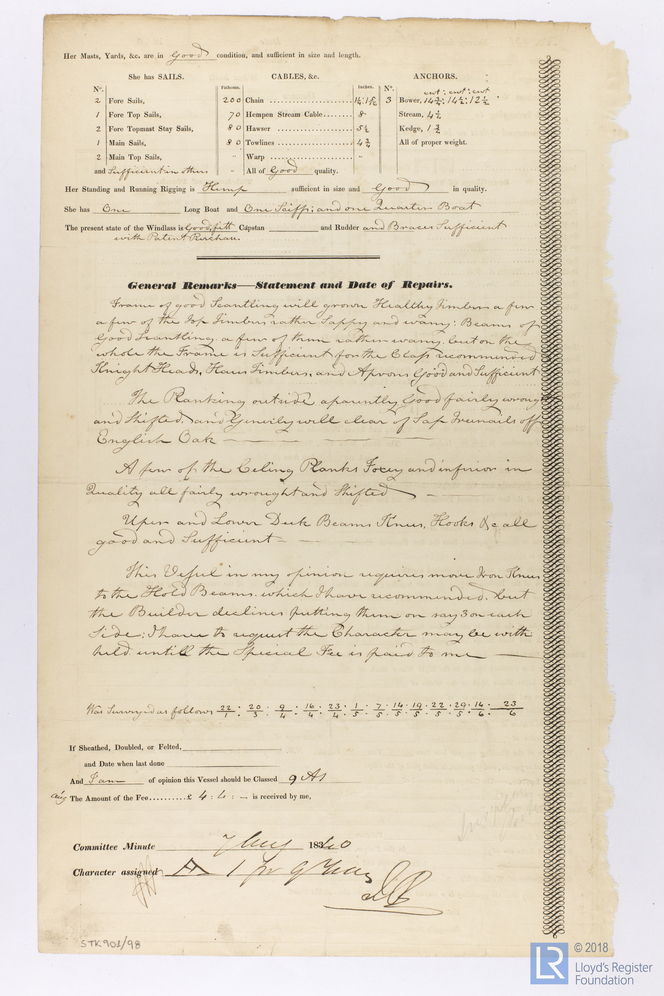 Her Masts, Yards, &c. are in Good condition, and sufficient in size and length.
She has SAILS. CABLES, &c. ANCHORS.
N°. Fathoms. Inches. N°. cwt cwt cwt
2 Fore Sails, 200 Chain 3 Bower, 14¾ : 14½ : 12½
1 Fore Top Sails, 70 Hempen Stream Cable 8 Stream, 4½
2 Fore Topmast Stay Sails, 80 Hawser 5½ Kedge, 1¾
1 Main Sails, 80 Towlines 4¾ All of proper weight.
2 Main Top Sails, - Warp -
and Sufficient in others - All of Good quality.
Her Standing and Running Rigging is Hemp sufficient in size and Good in quality.
She has One Long Boat and One Skiff; and one Quarter Boat
The present state of the Windlass is Good, fitt Capstan and Rudder and Braces Sufficient
with Patent Purchase.
General Remarks—Statement and Date of Repairs.
Frame of good Scantling will grown Healthy Timbers a few
a few of the Top Timbers rather Sappy and wany: Beams of
Good Scantling a few of them rather wany. but on the
whole the Frame is Sufficient for the Class recommended
Knight Heads, Haws Timbers, and Aprons Good and Sufficient
The Planking outside aparently Good fairly wrought
and Shifted, and Generily will clear of Sap Treenails of
English Oak
A few of the Celing Planks Foxey and inferior in
Quality all fairly wrought and Shifted
Uper and Lower Deck Beams Knees, Hooks &c all
good and Sufficient
This Vessel in my opinion requires more Iron Knees
to the Hold Beams. which I have recommended. but
the Builder declines putting them on say 3 on each
Side: I have to request the Character may be with
held untill the Special Fee is paid to me
Was Surveyed as follows 22/1 : 20/3 : 9/4 : 16/4 : 23/4 : 1/5 : 7/5 : 14/5 : 19/5 : 22/5 : 29/5 : 16/6 : 23/6
If Sheathed, Doubled, or Felted,
and Date when last done
And I am of opinion this Vessel should be Classed 9 A1
The Amount of the Fee..........£ 4 : 4 : — is received by me,
Committee Minute 7 Aug 1840
Character assigned A 1 for 9 Years
STK901/98
LR © 2018
Lloyd's Register
Foundation